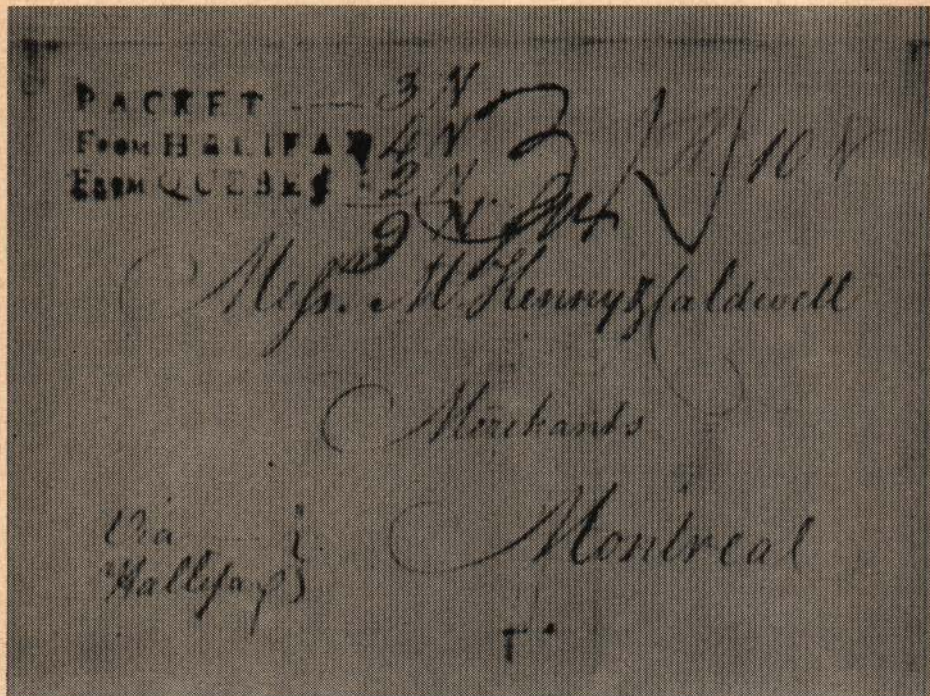 PACKET 3 N
From HALIFAX 4 N
From QUEBEC 2 N
9 N
16 N
Messrs. McKenny & Caldwell
Merchants
Montreal
Via
Hallifax